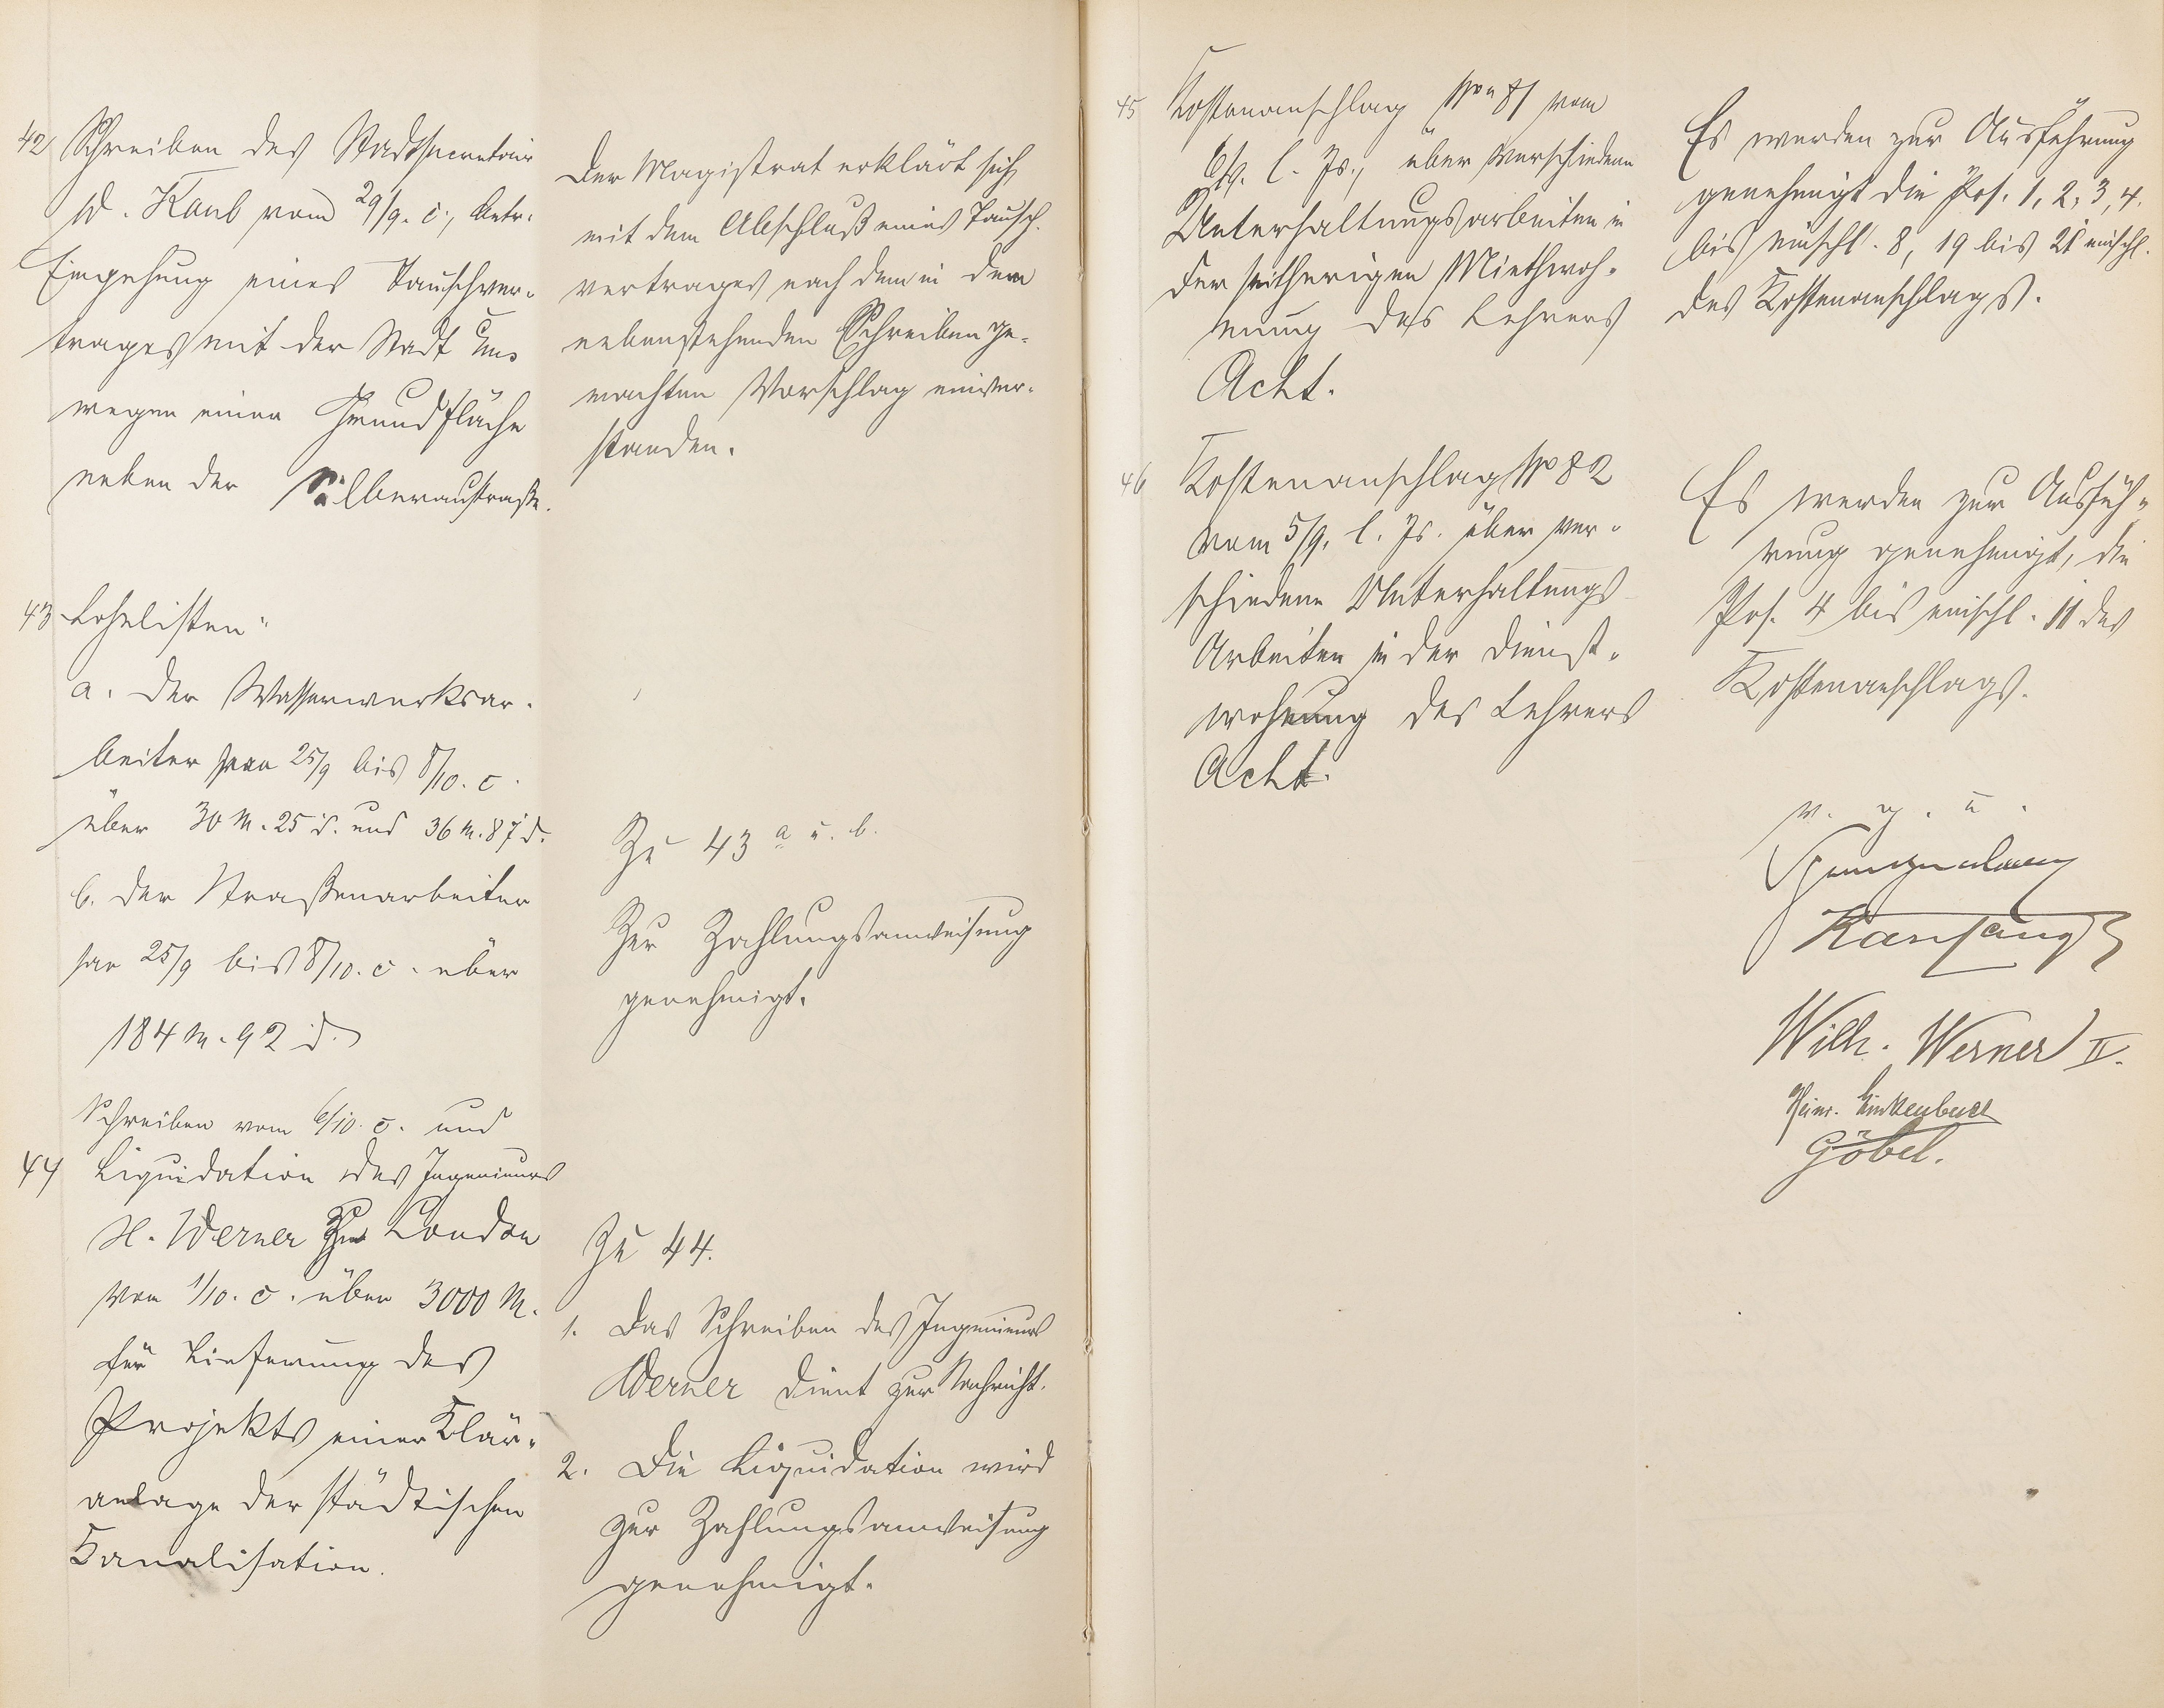 42 Schreiben des Stadtsecretair
W. Kaub vom 29/9. c., betr.
Eingehung eines Tauschver-
trages mit der Stadt Ems
wegen einer Grundfläche
neben der Silberaustraße.
Der Magistrat erklärt sich
mit dem Abschluß eines Tausch-
vertrages nach dem in dem
nebenstehenden Schreiben ge-
machten Vorschlag einver-
standen.
43 Lohnlisten
a. der Wasserwerksar-
beiter pro 25/9 bis 8/10. c.
über 30 M. 25 d. und 36 M. 87 d.
b. der Straßenarbeiter
pro 25/9 bis 8/10. c. über
184 M. 92 d.
Zu 43 a u. b.
Zur Zahlungsanweisung
genehmigt.
Schreiben vom 6/10. c. und
44 Liquidation des Ingenieurs
H. Werner zu London
vom 1/10. c. über 3000 M.
für Lieferung des
Projekts einer Klär-
anlage der städtischen
Kanalisation.
Zu 44.
1. Das Schreiben des Ingenieurs
Werner dient zur Nachricht.
2. Die Liquidation wird
zur Zahlungsanweisung
genehmigt.
45 Kostenanschlag No 81 vom
6/9. l. Js., über verschiedene
Unterhaltungsarbeiten in
der seitherigen Miethwoh-
nung des Lehrers
Acht.
Es werden zur Ausführung
genehmigt die Pos. 1, 2, 3, 4.
bis einschl. 8, 19 bis 21 einschl.
des Kostenanschlags.
46 Kostenanschlag No 82
vom 5/9. l. Js. über ver-
schiedene Unterhaltungs-
Arbeiten in der Dienst-
wohnung des Lehrers
Acht.
Es werden zur Ausfüh-
rung genehmigt, die
Pos. 4 bis einschl. 11 des
Kostenanschlags.
v. g. u.
Wilh. Werner II.
Heinr. Linkenbach
Göbel.